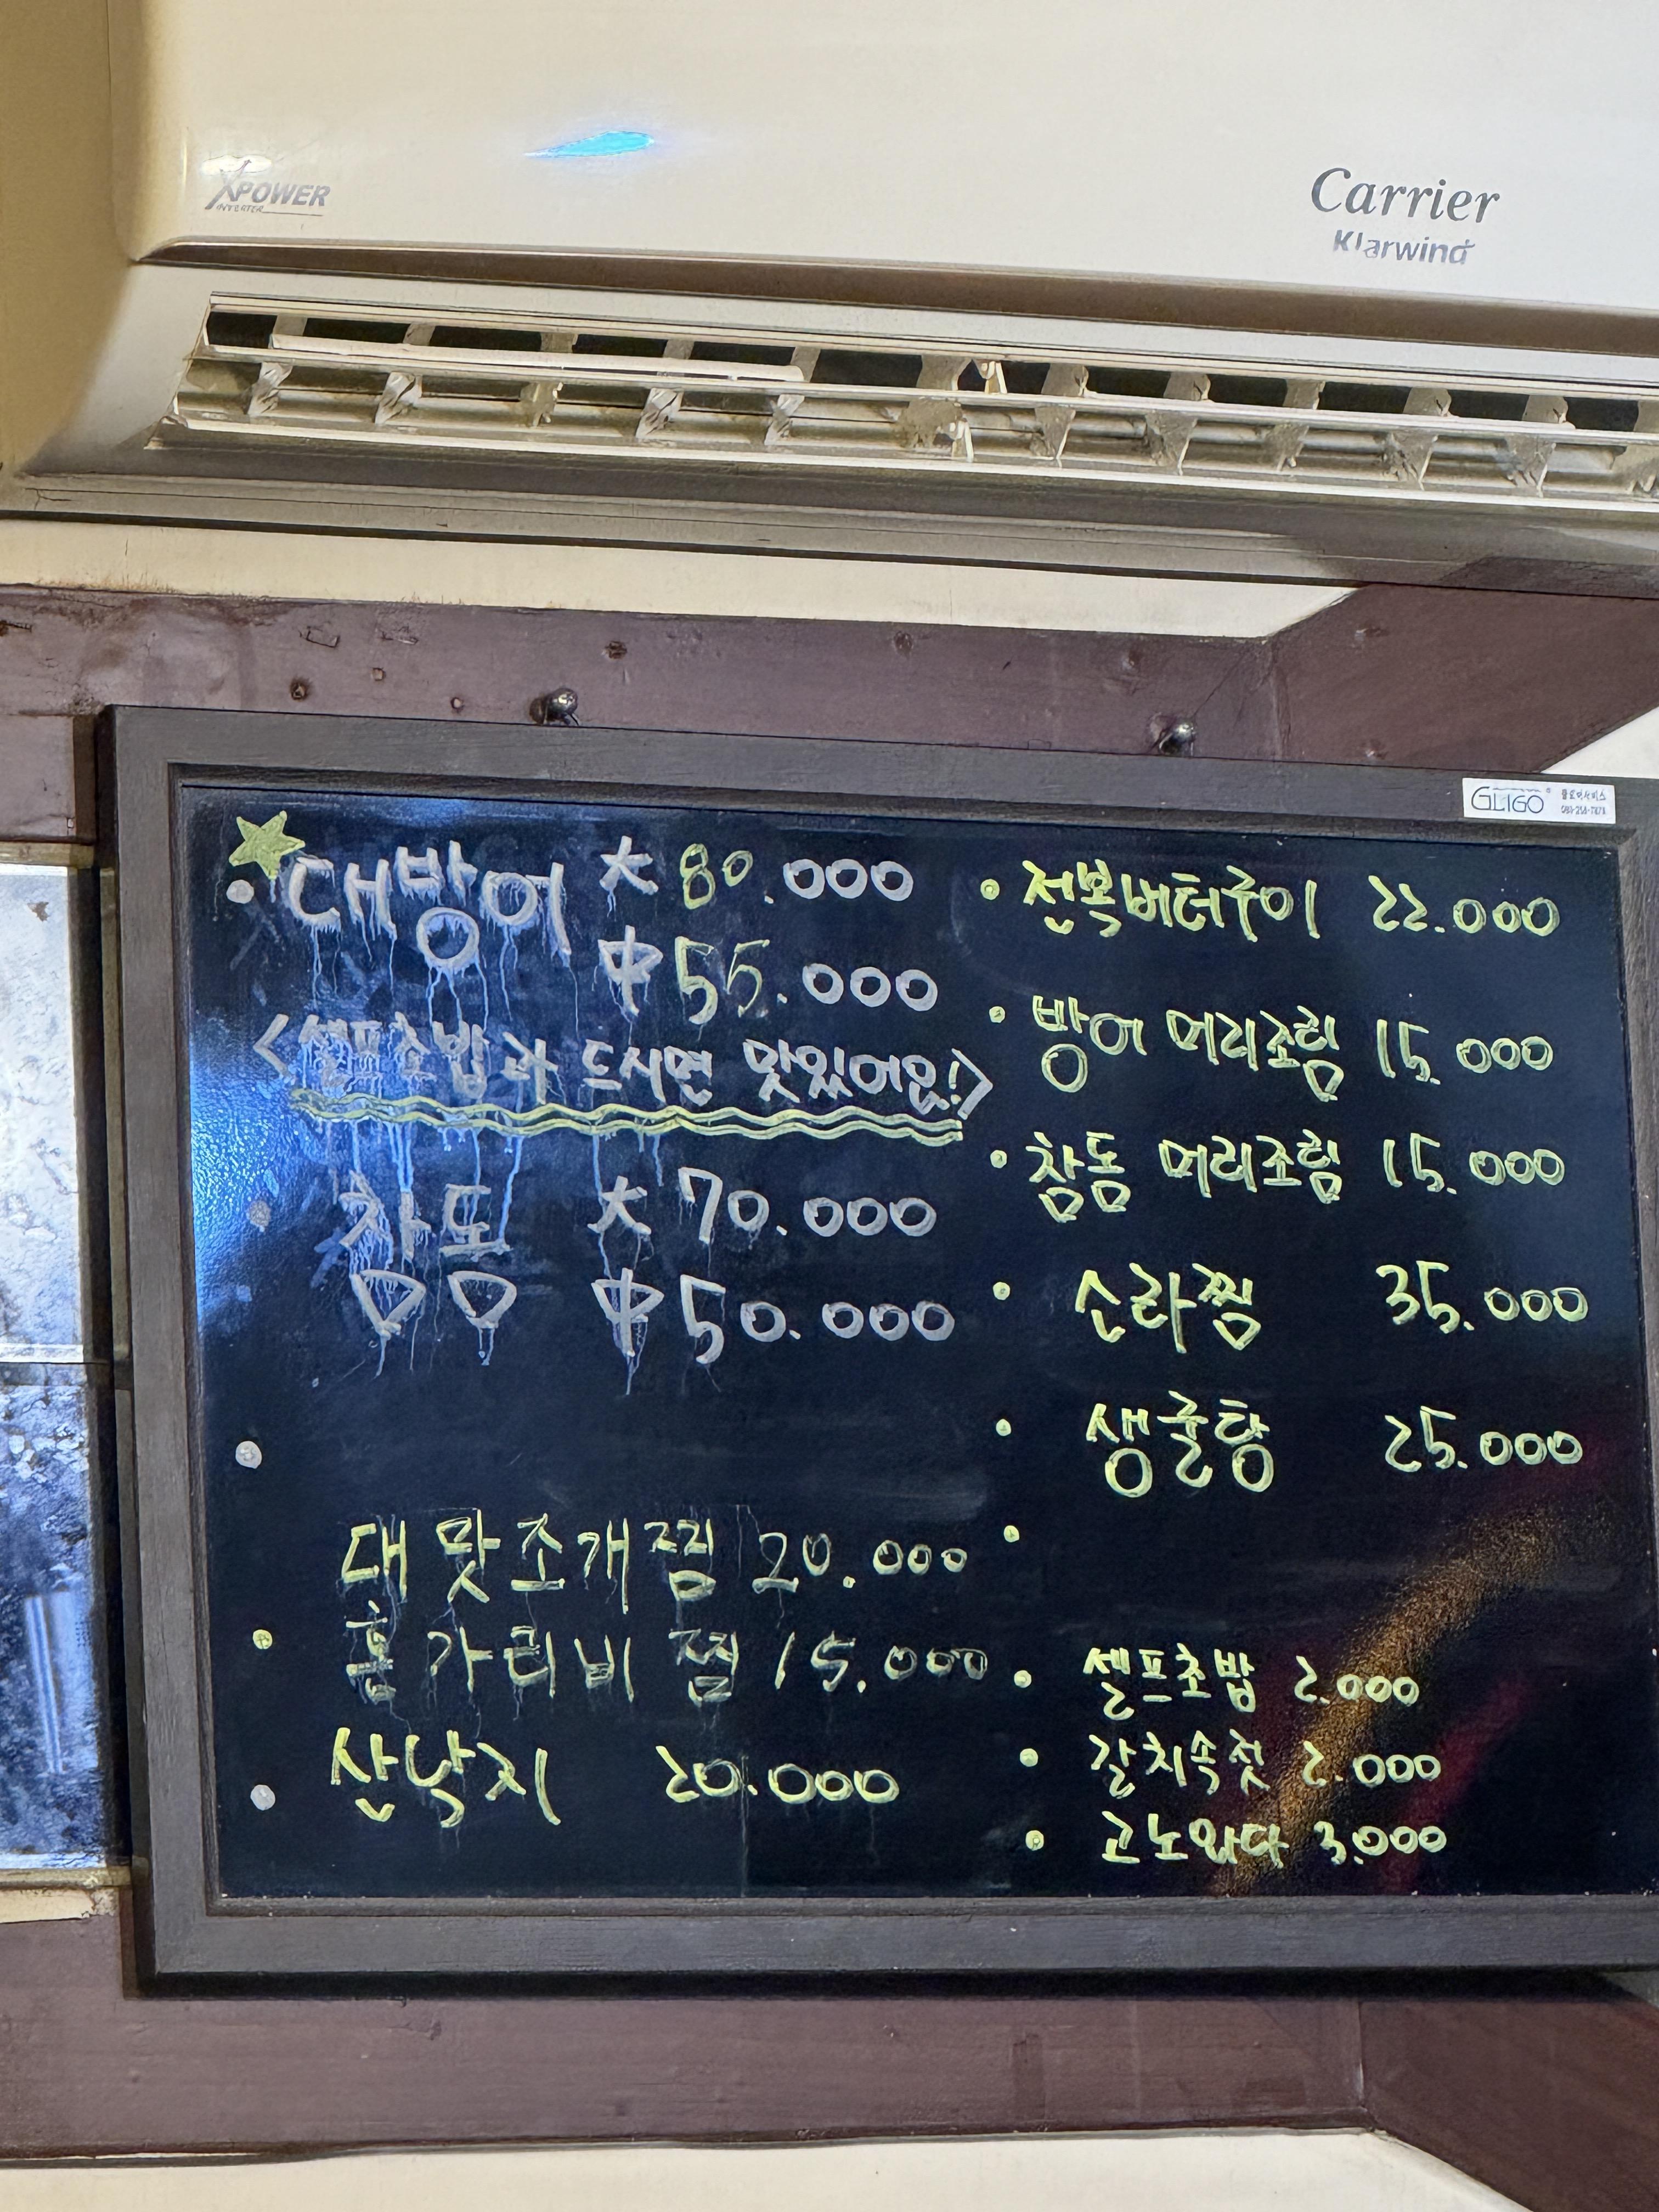 XPOWER
INVERTER
Carrier
Klarwind
GLIGO
대방어 大 80.000
中 55.000
<셀프초밥과 드시면 맛있어요!>
참돔 大 70.000
中 50.000
대맛조개찜 20.000
홍가리비찜 15.000
산낙지 20.000
전복버터구이 22.000
방어 머리조림 15.000
참돔 머리조림 15.000
소라찜 35.000
생굴탕 25.000
셀프초밥 2.000
갈치속젓 2.000
고노와다 3.000